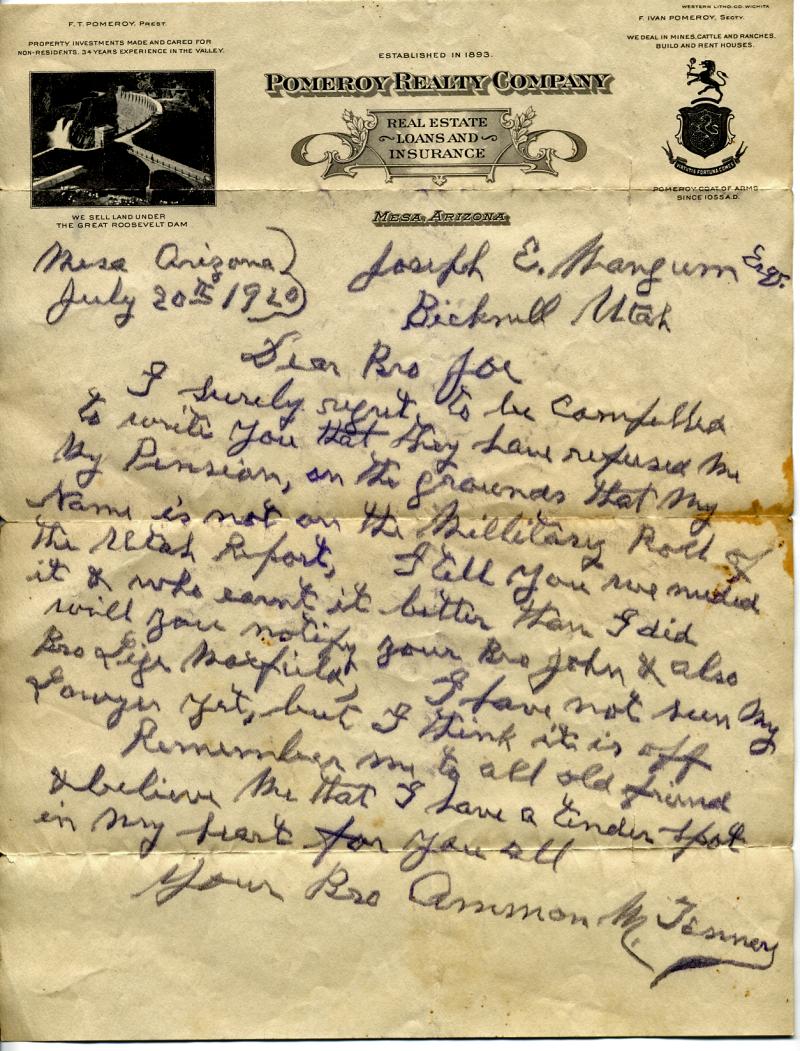 WESTERN LITHO. CO. WICHITA
F. T. POMEROY, PREST.
F. IVAN POMEROY, SECTY.
PROPERTY INVESTMENTS MADE AND CARED FOR
NON-RESIDENTS. 34 YEARS EXPERIENCE IN THE VALLEY.
WE DEAL IN MINES, CATTLE AND RANCHES.
BUILD AND RENT HOUSES.
ESTABLISHED IN 1893.
POMEROY REALTY COMPANY
REAL ESTATE
LOANS AND
INSURANCE
VIRTUTIS FORTUNA COMES
POMEROY COAT OF ARMS
SINCE 1055 A.D.
WE SELL LAND UNDER
THE GREAT ROOSEVELT DAM
MESA, ARIZONA
Mesa Arizona
July 20th 1920
Joseph E. Mangum Esqr.
Bicknell Utah
Dear Bro Joe
I surely regret, to be Compelled
to write you that they have refused me
My Pension, on the grounds that My
Name is not on the Millitary Roll of
the Utah Report, I tell you we needed
it & who earnt it better than I did
will you notify your Bro John & also
Bro Lige Maxfield, I have not seen My
Lawyer yet, but I think it is off
Remember me to all old friend
& believe Me that I have a tender spot
in My heart for you all
Your Bro Ammon M. Tenney